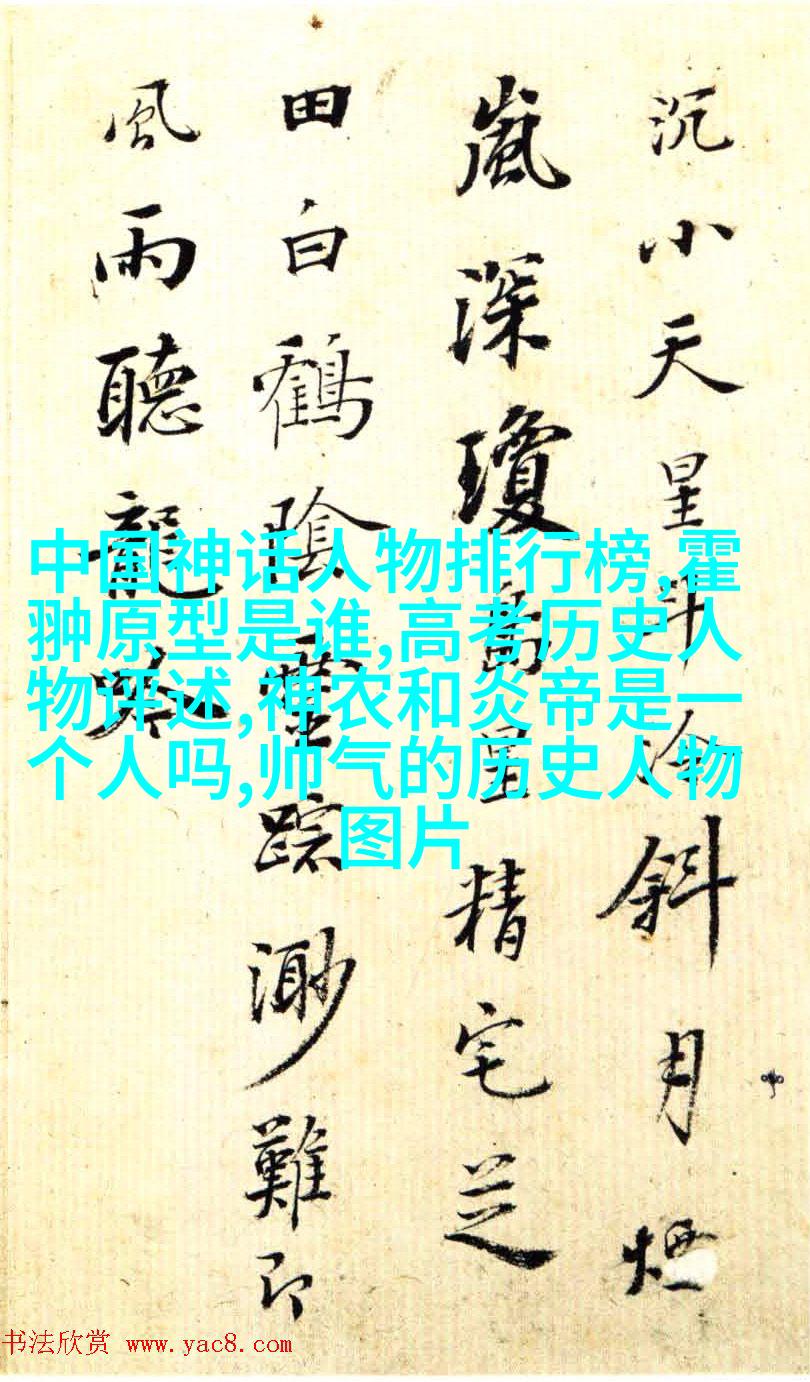 沉小天星斗冷斜月煙
嵐深瓊島星精宅芝
田白鶴陰靈踪渺難即
風雨聽龍吟
中国神话人物排行榜,霍
翀原型是谁,高考历史人
物评述,神农和炎帝是一
个人吗,帅气的历史人物
图片
书法欣赏 www.yac8.com